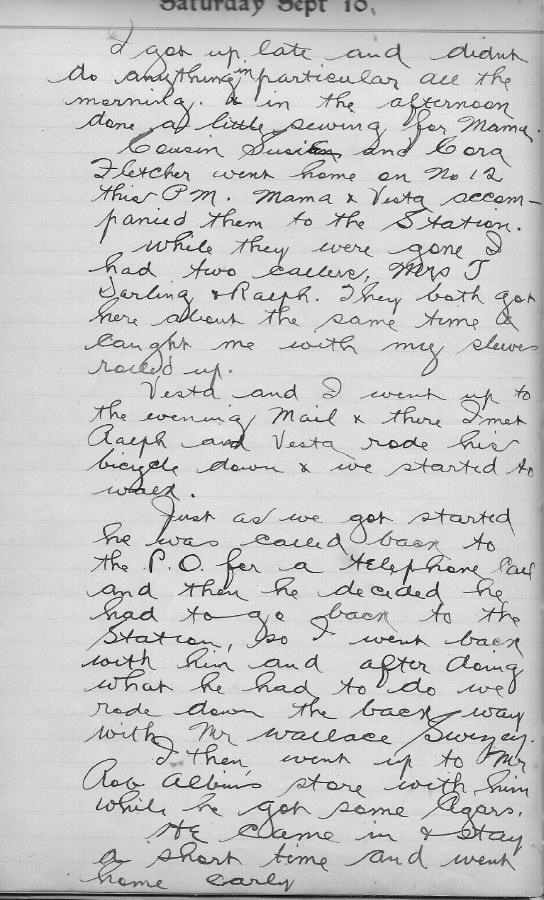 Saturday Sept 10,
I got up late and didnt
do anything in particular all the
morning. & in the afternoon
done a little sewing for Mama.
Cousin Susie and Cora
Fletcher went home on No 12
this P.M. Mama & Vesta accom-
panied them to the Station.
while they were gone I
had two callers, Mrs J
Darling & Ralph. They both got
here about the same time &
caught me with my sleeves
rolled up.
Vesta and I went up to
the evening Mail & there I met
Ralph and Vesta rode his
bicycle down & we started to
walk.
Just as we got started
he was called back to
the P.O. for a telephone Call
and then he decided he
had to go back to the
Station, so I went back
with him and after doing
what he had to do we
rode down the back way
with Mr Wallace Swezey.
I then went up to Mr
Rob Albins store with him
while he got some Cigars.
He came in & stay
a short time and went
home early